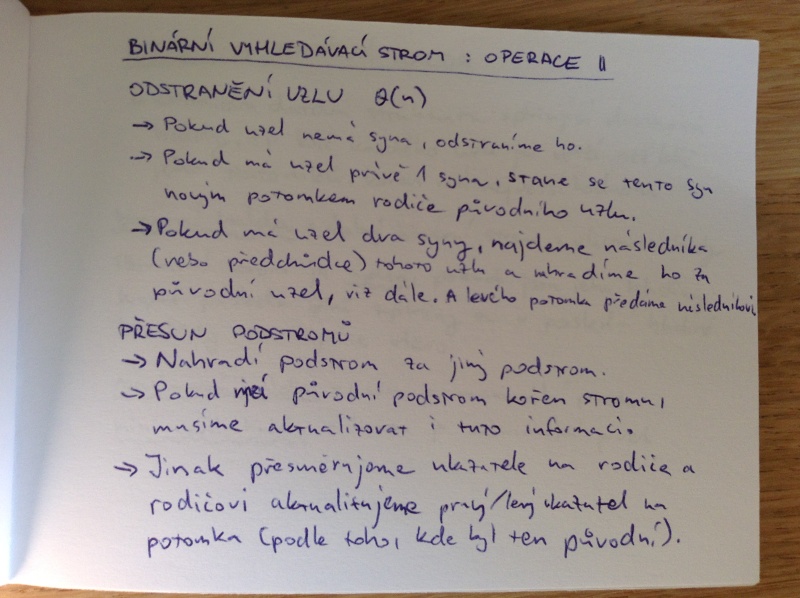 BINÁRNÍ VYHLEDÁVACÍ STROM : OPERACE II
ODSTRANĚNÍ UZLU Θ(n)
→ Pokud uzel nemá syna, odstraníme ho.
→ Pokud má uzel právě 1 syna, stane se tento syn
novým potomkem rodiče původního uzlu.
→ Pokud má uzel dva syny, najdeme následníka
(nebo předchůdce) tohoto uzlu a nahradíme ho za
původní uzel, viz dále. A levého potomka předáme následníkovi
PŘESUN PODSTROMŮ
→ Nahradí podstrom za jiný podstrom.
→ Pokud původní podstrom kořen stromu,
musíme aktualizovat i tuto informaci.
→ Jinak přesměrujeme ukazatele na rodiče a
rodičovi aktualizujeme pravý/levý ukazatel na
potomka (podle toho, kde byl ten původní).